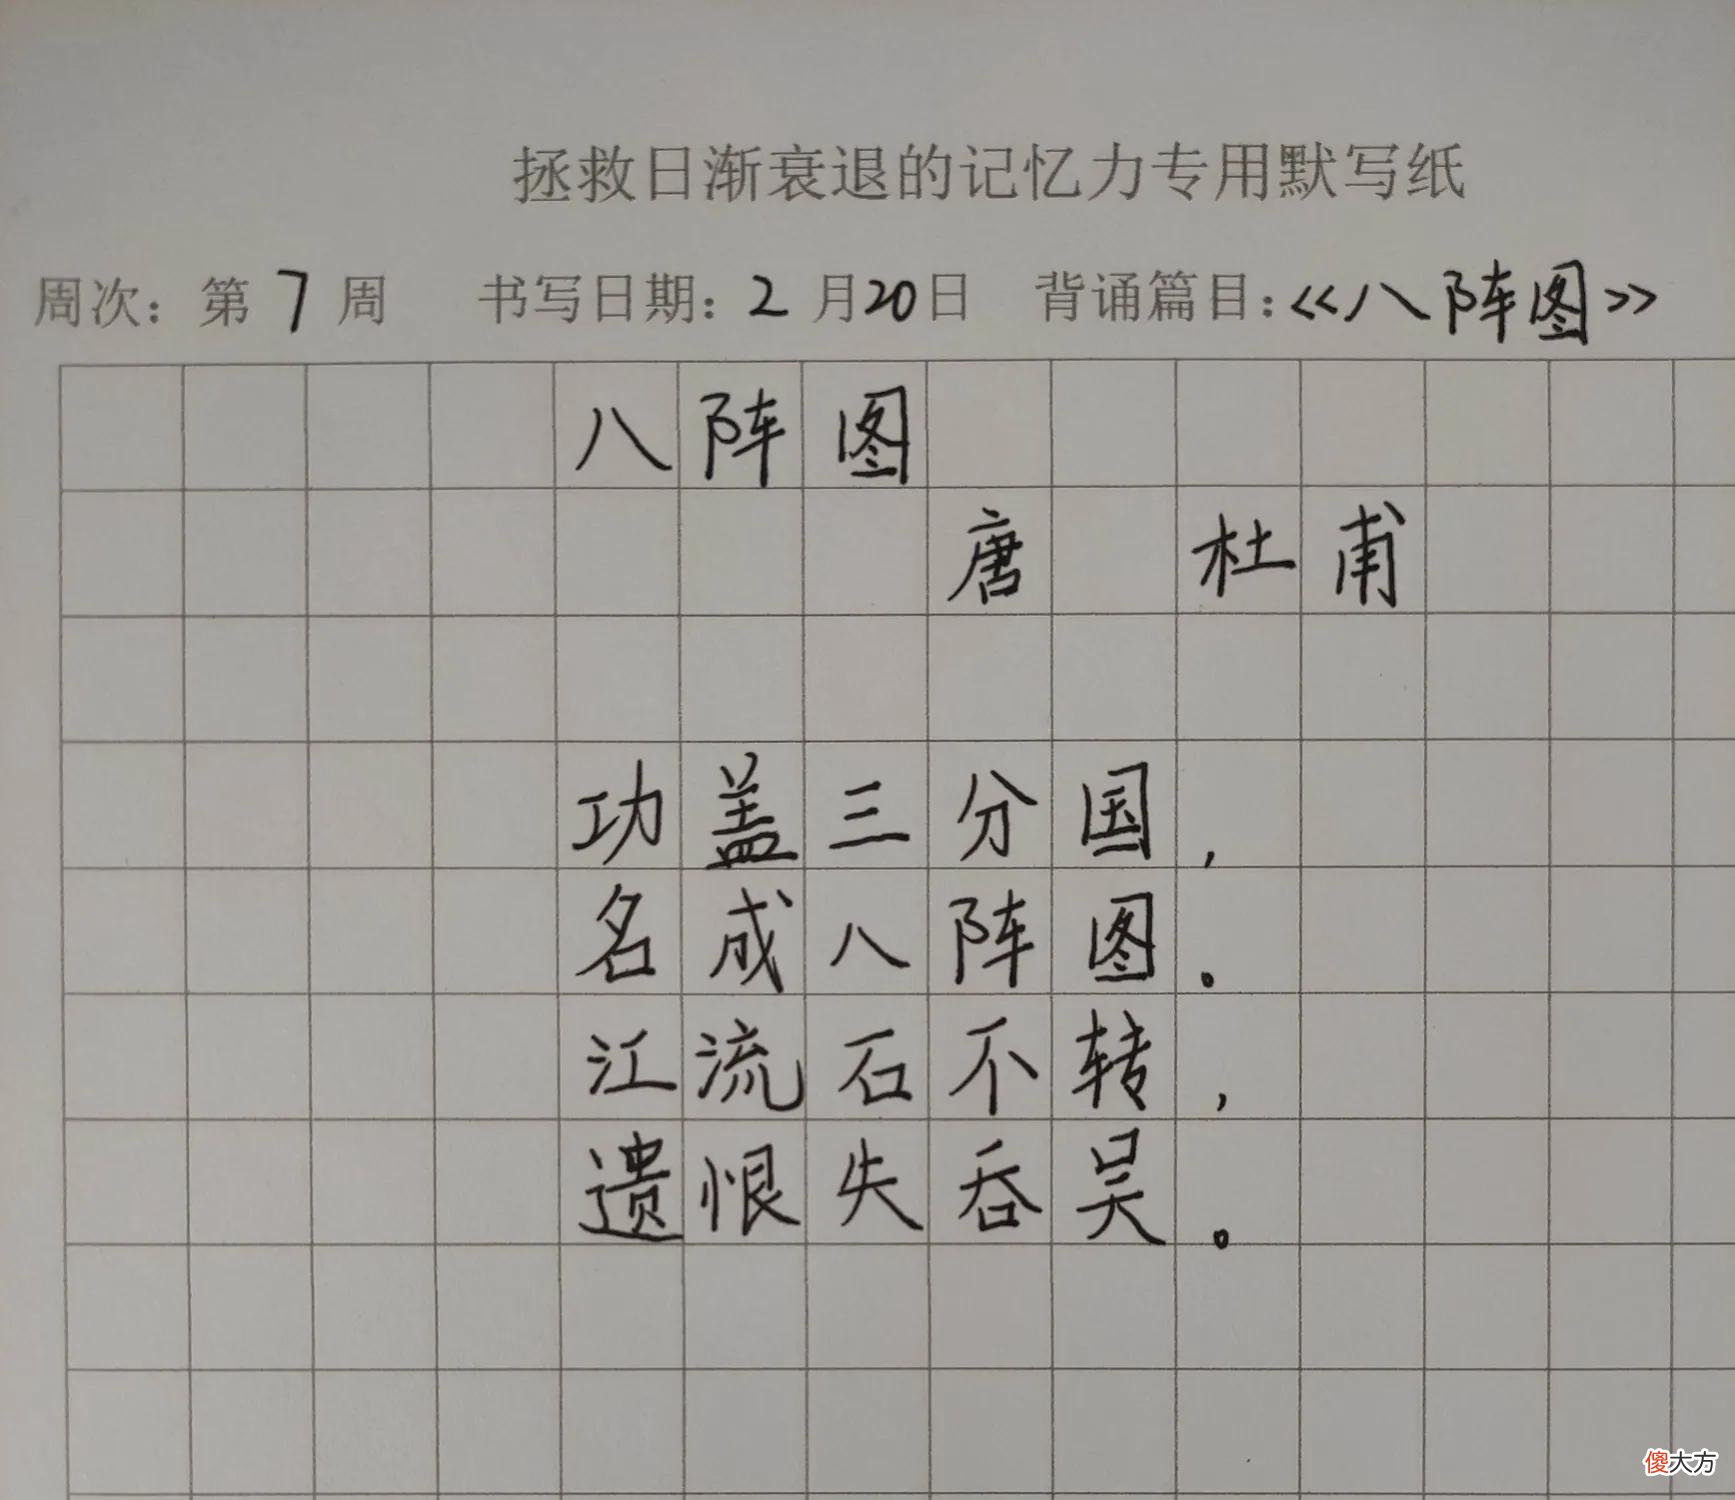 拯救日渐衰退的记忆力专用默写纸
周次：第 7 周 书写日期：2 月20日 背诵篇目：《八阵图》
八阵图
唐 杜甫
功盖三分国，
名成八阵图。
江流石不转，
遗恨失吞吴。
傻大方